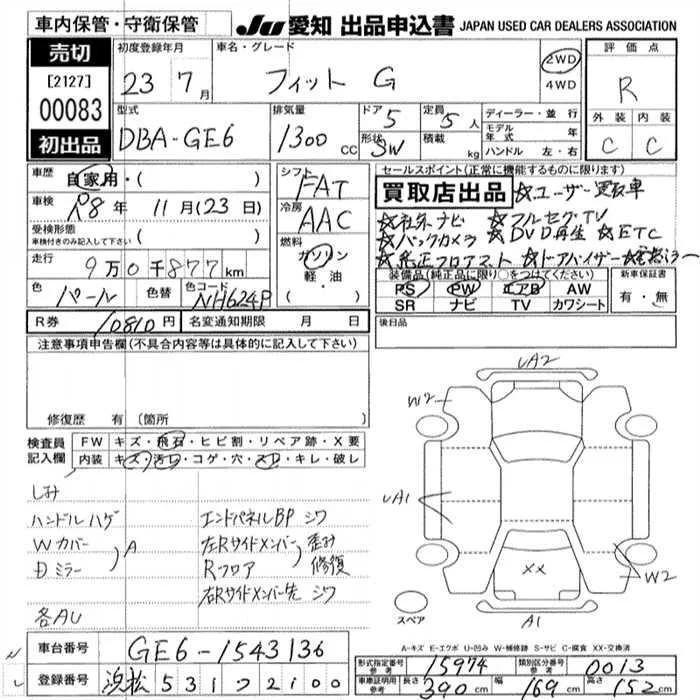 車内保管・守衛保管
JU 愛知 出品申込書 JAPAN USED CAR DEALERS ASSOCIATION
売切
[2127]
00083
初出品
初度登録年月
23 7月
車名・グレード
フィット G
2WD
4WD
評価点
R
外装 内装
C C
型式
DBA-GE6
排気量
1300 cc
ドア 5
形状 SW
定員 5人
積載 kg
ディーラー・並行
モデル年式 年
ハンドル 左・右
車歴 自家用・( )
車検 R8年 11月(23日)
受検形態
車検付きのみ記入して下さい ( )
走行 9万0千877km
色 パール 色替 色コード NH624P
シフト FAT
冷房 AAC
燃料
ガソリン
軽・油
・( )
セールスポイント(正常に機能するものに限ります)
買取店出品 ☆ユーザー買取車
☆社外ナビ ☆フルセグTV
☆バックカメラ ☆DVD再生 ☆ETC
☆純正フロアマット ☆ドアバイザー
装備品(純正品に限り○をつけてください)
PS PW エアB AW
SR ナビ TV カワシート
新車保証書
有・無
R券 10810円 名変通知期限 月 日
後日品
注意事項申告欄(不具合内容等は具体的に記入して下さい)
修復歴 有 (箇所
検査員記入欄
FW キズ・飛石・ヒビ割・リペア跡・X要
内装 キズ・汚レ・コゲ・穴・スレ・キレ・破レ
しみ
ハンドルハゲ エンドパネルBP シワ
Wカバー 左Rサイドメンバー 歪み
Dミラー A Rフロア 修復
右Rサイドメンバー先 シワ
各AU
UA2
W2
UA1
XX
W2
A1
スペア
A-キズ E-エクボ U-凹み W-補修跡 S-サビ C-腐食 XX-交換済
車台番号 GE6-1543136
登録番号 浜松 531 つ 2100
形式指定番号 参考 15974 類別区分番号 参考 0013
車庫証明用 参考 長さ 390cm 幅 169cm 高さ 152cm